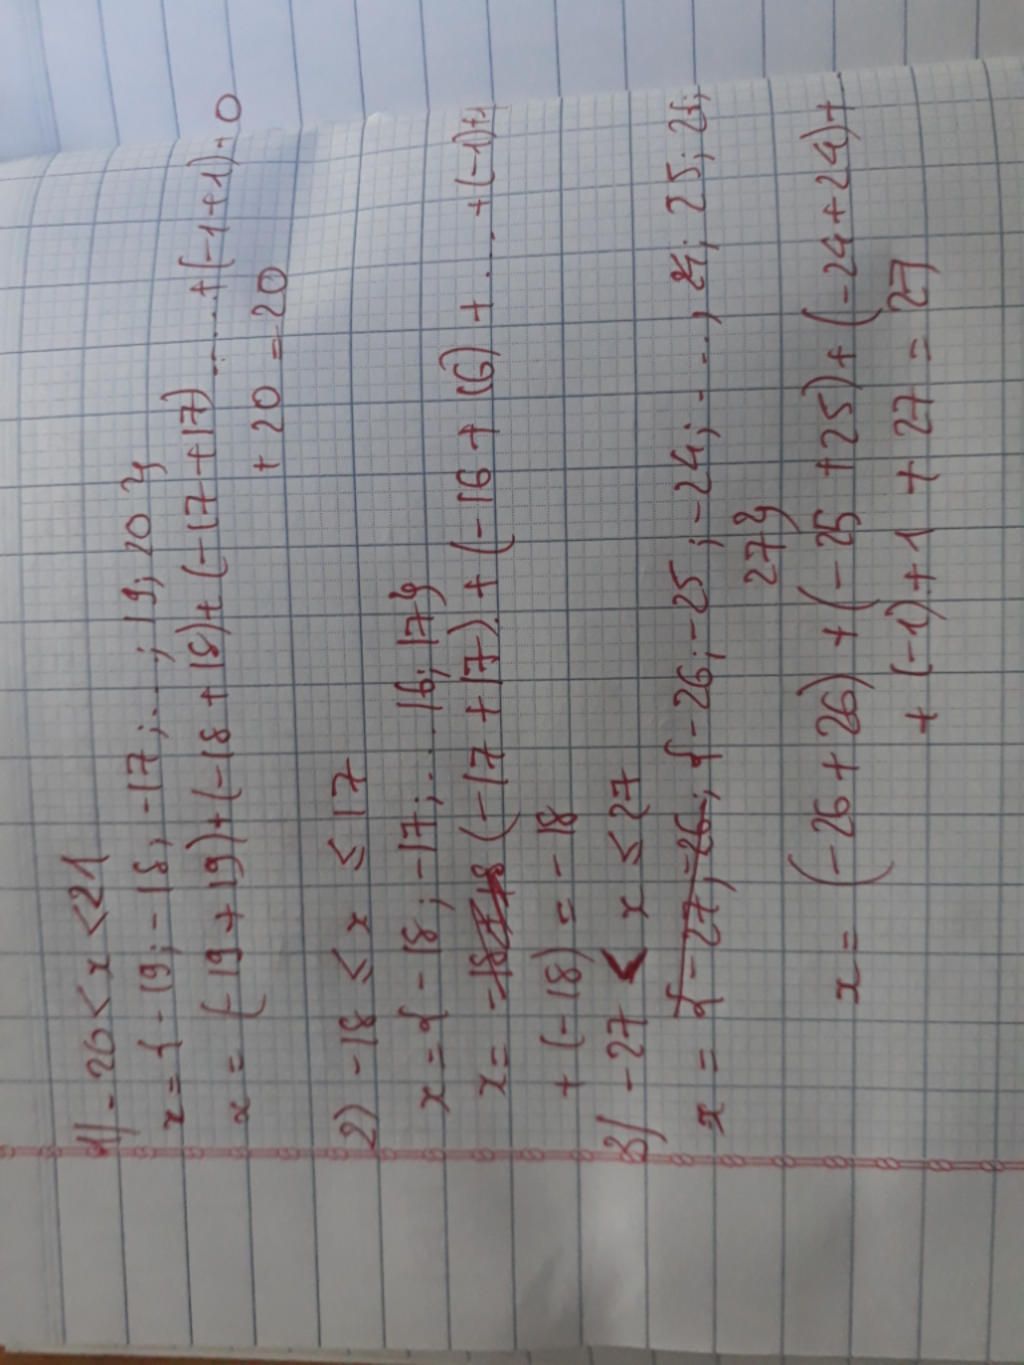 1) -20 < x < 21
x = { -19; -18; -17; ....; 19; 20 }
x = (-19 + 19) + (-18 + 18) + (-17 + 17) ..... + (-1 + 1) + 0
+ 20 = 20
2) -18 ≤ x ≤ 17
x = { -18; -17; .... 16; 17 }
x = (-17 + 17) + (-16 + 16) + .... + (-1) + 1
+ (-18) = -18
3) -27 < x ≤ 27
x = { -27; -26; { -26; -25; -24; ..., 24; 25; 26;
27 }
x = (-26 + 26) + (-25 + 25) + (-24 + 24) +
+ (-1) + 1 + 27 = 27